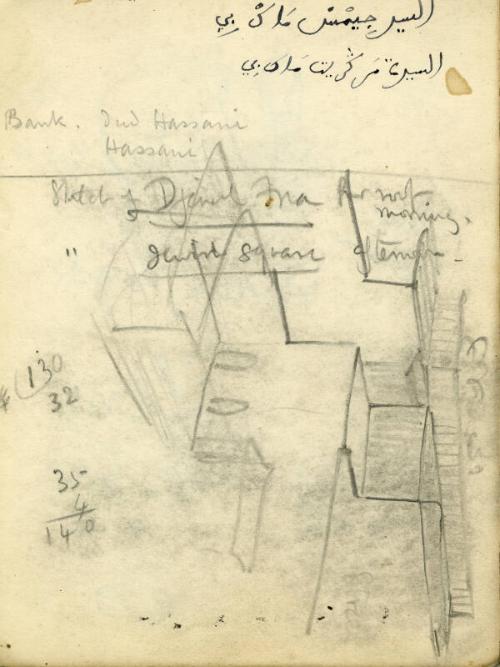 السيد جيمْسْ مَاكْ بِي
السيدة مَرگريت مَاك بِي
Bank. Dud Hassani
Hassani
Sketch of Djemel Fna for roof
morning.
" Jewish Square afternoon -
130
32
35
4
140